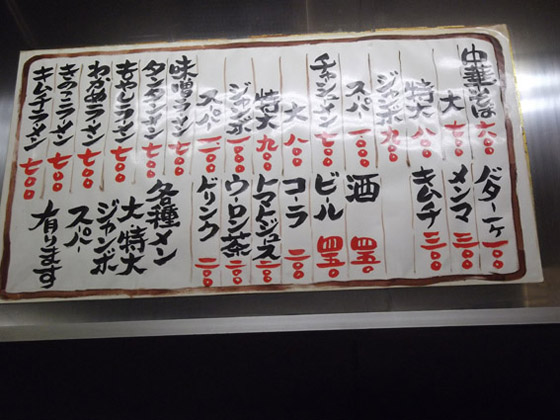 中華そば 六〇〇
大 七〇〇
特大 八〇〇
ジャンボ 九〇〇
スーパー 一〇〇〇
チャシューメン 七〇〇
大 八〇〇
特大 九〇〇
ジャンボ 一〇〇〇
スーパー 一一〇〇
味噌ラーメン 七〇〇
タンタンメン 七〇〇
もやしラーメン 七〇〇
わかめラーメン 七〇〇
きのこラーメン 七〇〇
キムチラーメン 七〇〇
バター一ヶ 一〇〇
メンマ 三〇〇
キムチ 三〇〇
酒 四五〇
ビール 四五〇
コーラ 二〇〇
トマトジュース 二〇〇
ウーロン茶 二〇〇
ドリンク 二〇〇
各種メン
大 特大
ジャンボ
スーパー
有ります